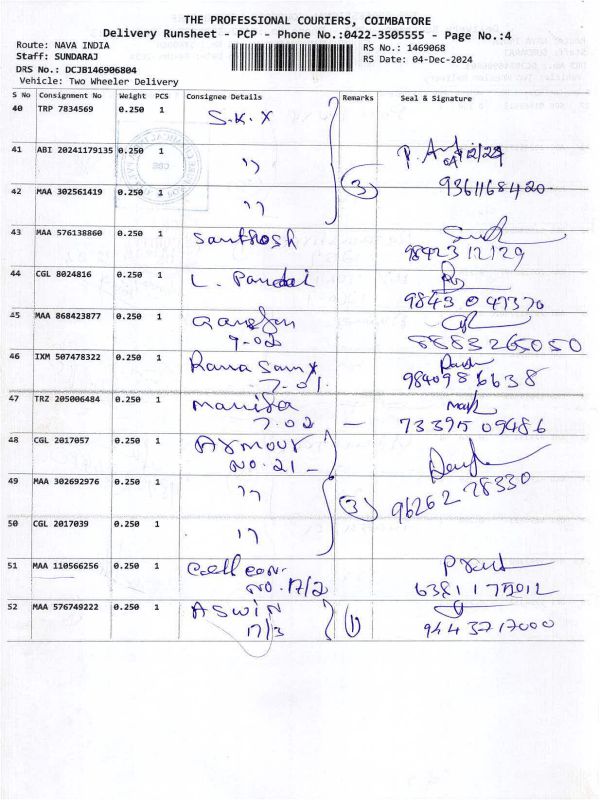 THE PROFESSIONAL COURIERS, COIMBATORE
Delivery Runsheet - PCP - Phone No.:0422-3505555 - Page No.:4
Route: NAVA INDIA
RS No.: 1469068
Staff: SUNDARAJ
RS Date: 04-Dec-2024
DRS No.: DCJB146906804
Vehicle: Two Wheeler Delivery
S No Consignment No Weight PCS Consignee Details Remarks Seal & Signature
40 TRP 7834569 0.250 1 S.K.X
41 ABI 20241179135 0.250 1 ,,
42 MAA 302561419 0.250 1 ,, 3 9361168420
43 MAA 576138860 0.250 1 Santhosh
9842312129
44 CGL 8024816 0.250 1 L. Pandai
9843 047370
45 MAA 868423877 0.250 1
7-02 8883265050
46 IXM 507478322 0.250 1 Rama Samy
7.01. 9840986638
47 TRZ 205006484 0.250 1 Manisa
7.02 — 7339509486
48 CGL 2017057 0.250 1 Armour
NO.21 -
49 MAA 302692976 0.250 1 ,, 3 96262 28330
50 CGL 2017039 0.250 1 ,,
51 MAA 110566256 0.250 1
NO.17/2
52 MAA 576749222 0.250 1 ASWIN
17/3 1 9443717000